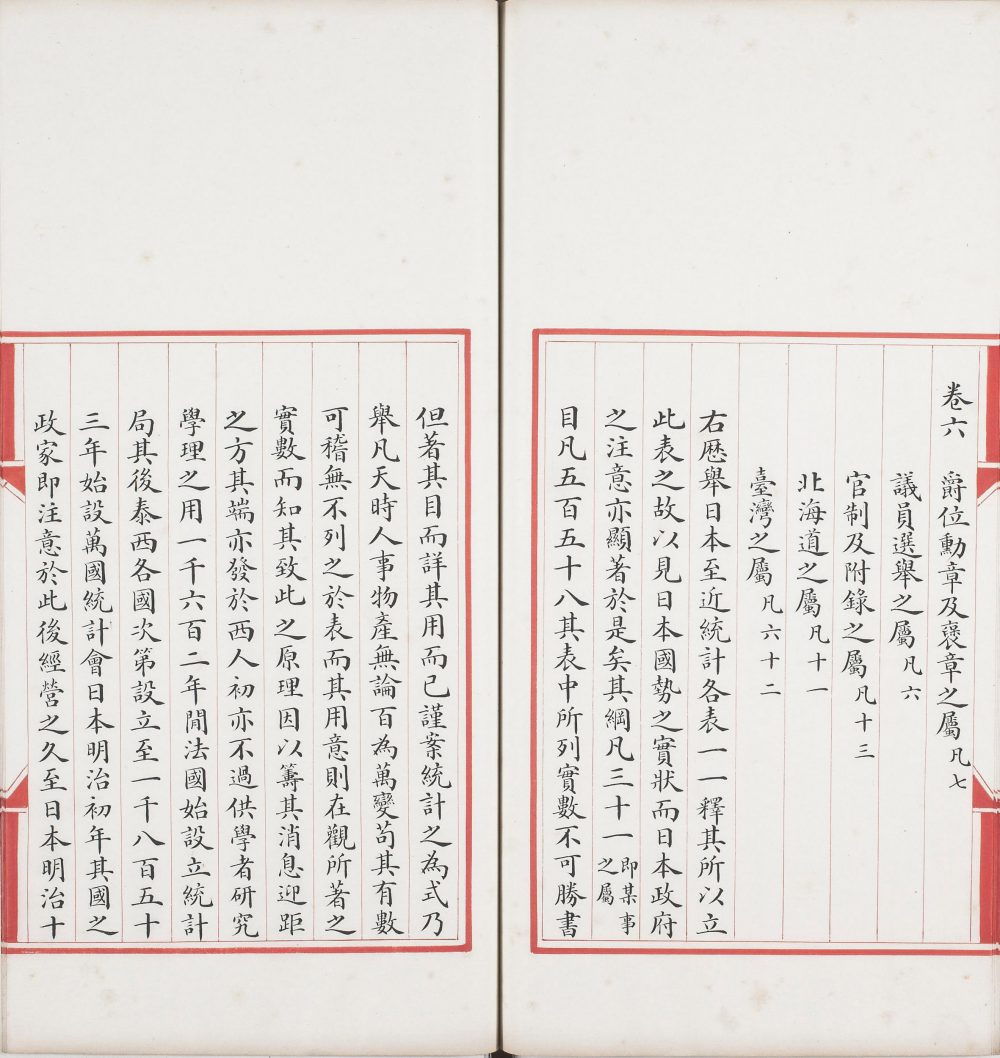 卷六 爵位勳章及襃章之屬凡七
議員選舉之屬凡六
官制及附錄之屬凡十三
北海道之屬凡十一
臺灣之屬凡六十二
右歴舉日本至近統計各表一一釋其所以立
此表之故以見日本國勢之實狀而日本政府
之注意亦顯著於是矣其綱凡三十一即某事之屬
目凡五百五十八其表中所列實數不可勝書
但著其目而詳其用而已謹案統計之為式乃
舉凡天時人事物產無論百為萬變苟其有數
可稽無不列之於表而其用意則在觀所著之
實數而知其致此之原理因以籌其消息迎距
之方其端亦發於西人初亦不過供學者研究
學理之用一千六百二年閒法國始設立統計
局其後泰西各國次第設立至一千八百五十
三年始設萬國統計會日本明治初年其國之
政家即注意於此後經營之久至日本明治十